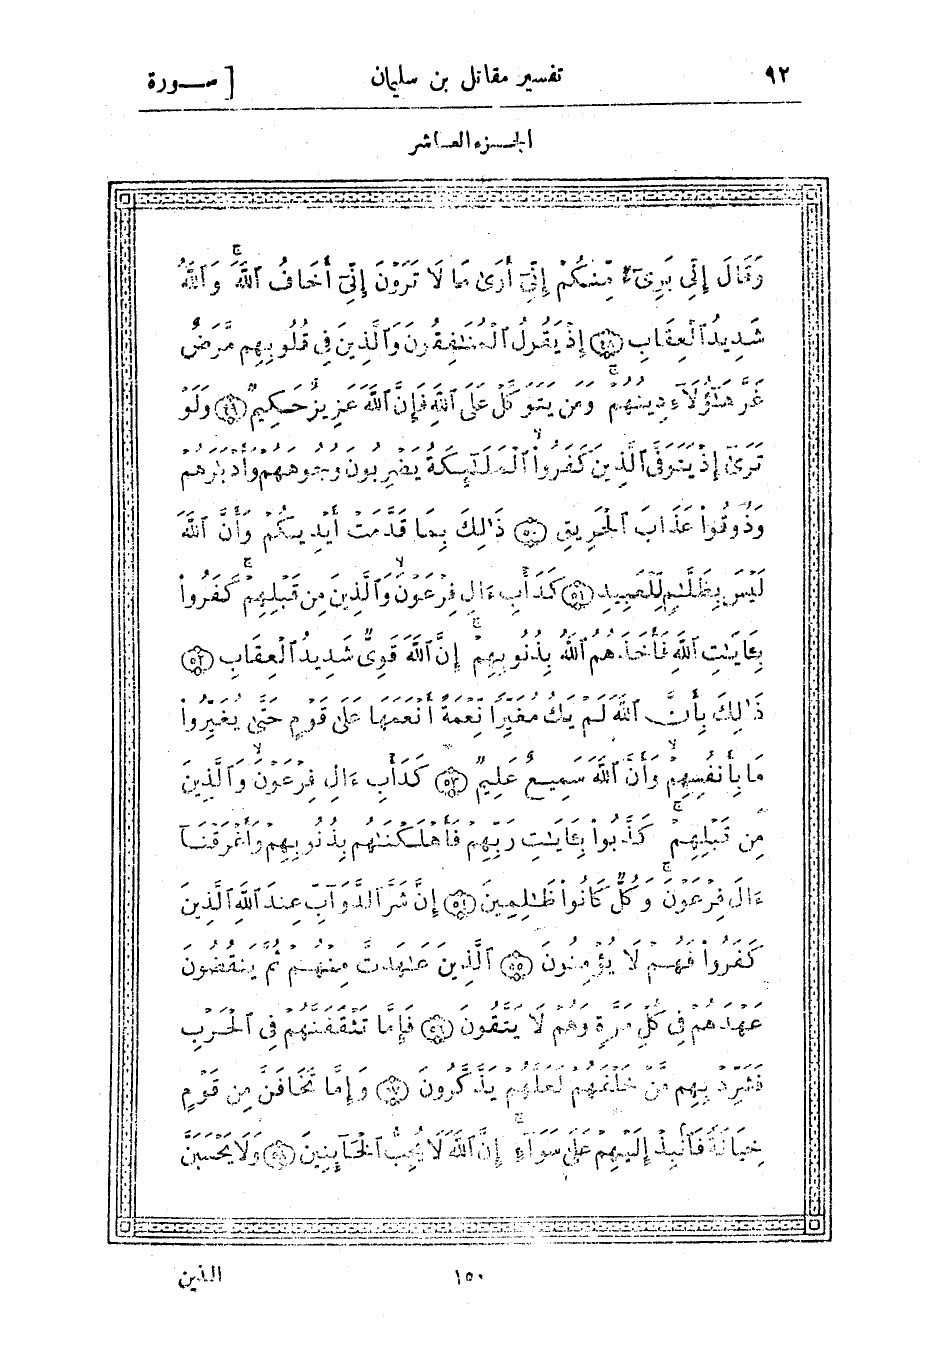 ٩٢ تفسير مقاتل بن سليمان [ ســورة
الجـزء العـاشر
وَقَالَ إِنِّي بَرِيٓءٌ مِّنكُمْ إِنِّيٓ أَرَىٰ مَا لَا تَرَوْنَ إِنِّيٓ أَخَافُ ٱللَّهَ ۚ وَٱللَّهُ
شَدِيدُ ٱلْعِقَابِ ﴿٤٨﴾ إِذْ يَقُولُ ٱلْمُنَٰفِقُونَ وَٱلَّذِينَ فِي قُلُوبِهِم مَّرَضٌ
غَرَّ هَٰٓؤُلَآءِ دِينُهُمْ ۗ وَمَن يَتَوَكَّلْ عَلَى ٱللَّهِ فَإِنَّ ٱللَّهَ عَزِيزٌ حَكِيمٌ ﴿٤٩﴾ وَلَوْ
تَرَىٰٓ إِذْ يَتَوَفَّى ٱلَّذِينَ كَفَرُوا۟ ۙ ٱلْمَلَٰٓئِكَةُ يَضْرِبُونَ وُجُوهَهُمْ وَأَدْبَٰرَهُمْ
وَذُوقُوا۟ عَذَابَ ٱلْحَرِيقِ ﴿٥٠﴾ ذَٰلِكَ بِمَا قَدَّمَتْ أَيْدِيكُمْ وَأَنَّ ٱللَّهَ
لَيْسَ بِظَلَّٰمٍ لِّلْعَبِيدِ ﴿٥١﴾ كَدَأْبِ ءَالِ فِرْعَوْنَ ۙ وَٱلَّذِينَ مِن قَبْلِهِمْ ۚ كَفَرُوا۟
بِـَٔايَٰتِ ٱللَّهِ فَأَخَذَهُمُ ٱللَّهُ بِذُنُوبِهِمْ ۚ إِنَّ ٱللَّهَ قَوِيٌّ شَدِيدُ ٱلْعِقَابِ ﴿٥٢﴾
ذَٰلِكَ بِأَنَّ ٱللَّهَ لَمْ يَكُ مُغَيِّرًا نِّعْمَةً أَنْعَمَهَا عَلَىٰ قَوْمٍ حَتَّىٰ يُغَيِّرُوا۟
مَا بِأَنفُسِهِمْ ۙ وَأَنَّ ٱللَّهَ سَمِيعٌ عَلِيمٌ ﴿٥٣﴾ كَدَأْبِ ءَالِ فِرْعَوْنَ ۙ وَٱلَّذِينَ
مِن قَبْلِهِمْ ۚ كَذَّبُوا۟ بِـَٔايَٰتِ رَبِّهِمْ فَأَهْلَكْنَٰهُم بِذُنُوبِهِمْ وَأَغْرَقْنَآ
ءَالَ فِرْعَوْنَ ۚ وَكُلٌّ كَانُوا۟ ظَٰلِمِينَ ﴿٥٤﴾ إِنَّ شَرَّ ٱلدَّوَآبِّ عِندَ ٱللَّهِ ٱلَّذِينَ
كَفَرُوا۟ فَهُمْ لَا يُؤْمِنُونَ ﴿٥٥﴾ ٱلَّذِينَ عَٰهَدتَّ مِنْهُمْ ثُمَّ يَنقُضُونَ
عَهْدَهُمْ فِي كُلِّ مَرَّةٍ وَهُمْ لَا يَتَّقُونَ ﴿٥٦﴾ فَإِمَّا تَثْقَفَنَّهُمْ فِي ٱلْحَرْبِ
فَشَرِّدْ بِهِم مَّنْ خَلْفَهُمْ لَعَلَّهُمْ يَذَّكَّرُونَ ﴿٥٧﴾ وَإِمَّا تَخَافَنَّ مِن قَوْمٍ
خِيَانَةً فَٱنۢبِذْ إِلَيْهِمْ عَلَىٰ سَوَآءٍ ۚ إِنَّ ٱللَّهَ لَا يُحِبُّ ٱلْخَآئِنِينَ ﴿٥٨﴾ وَلَا يَحْسَبَنَّ
١٥٠ الذين